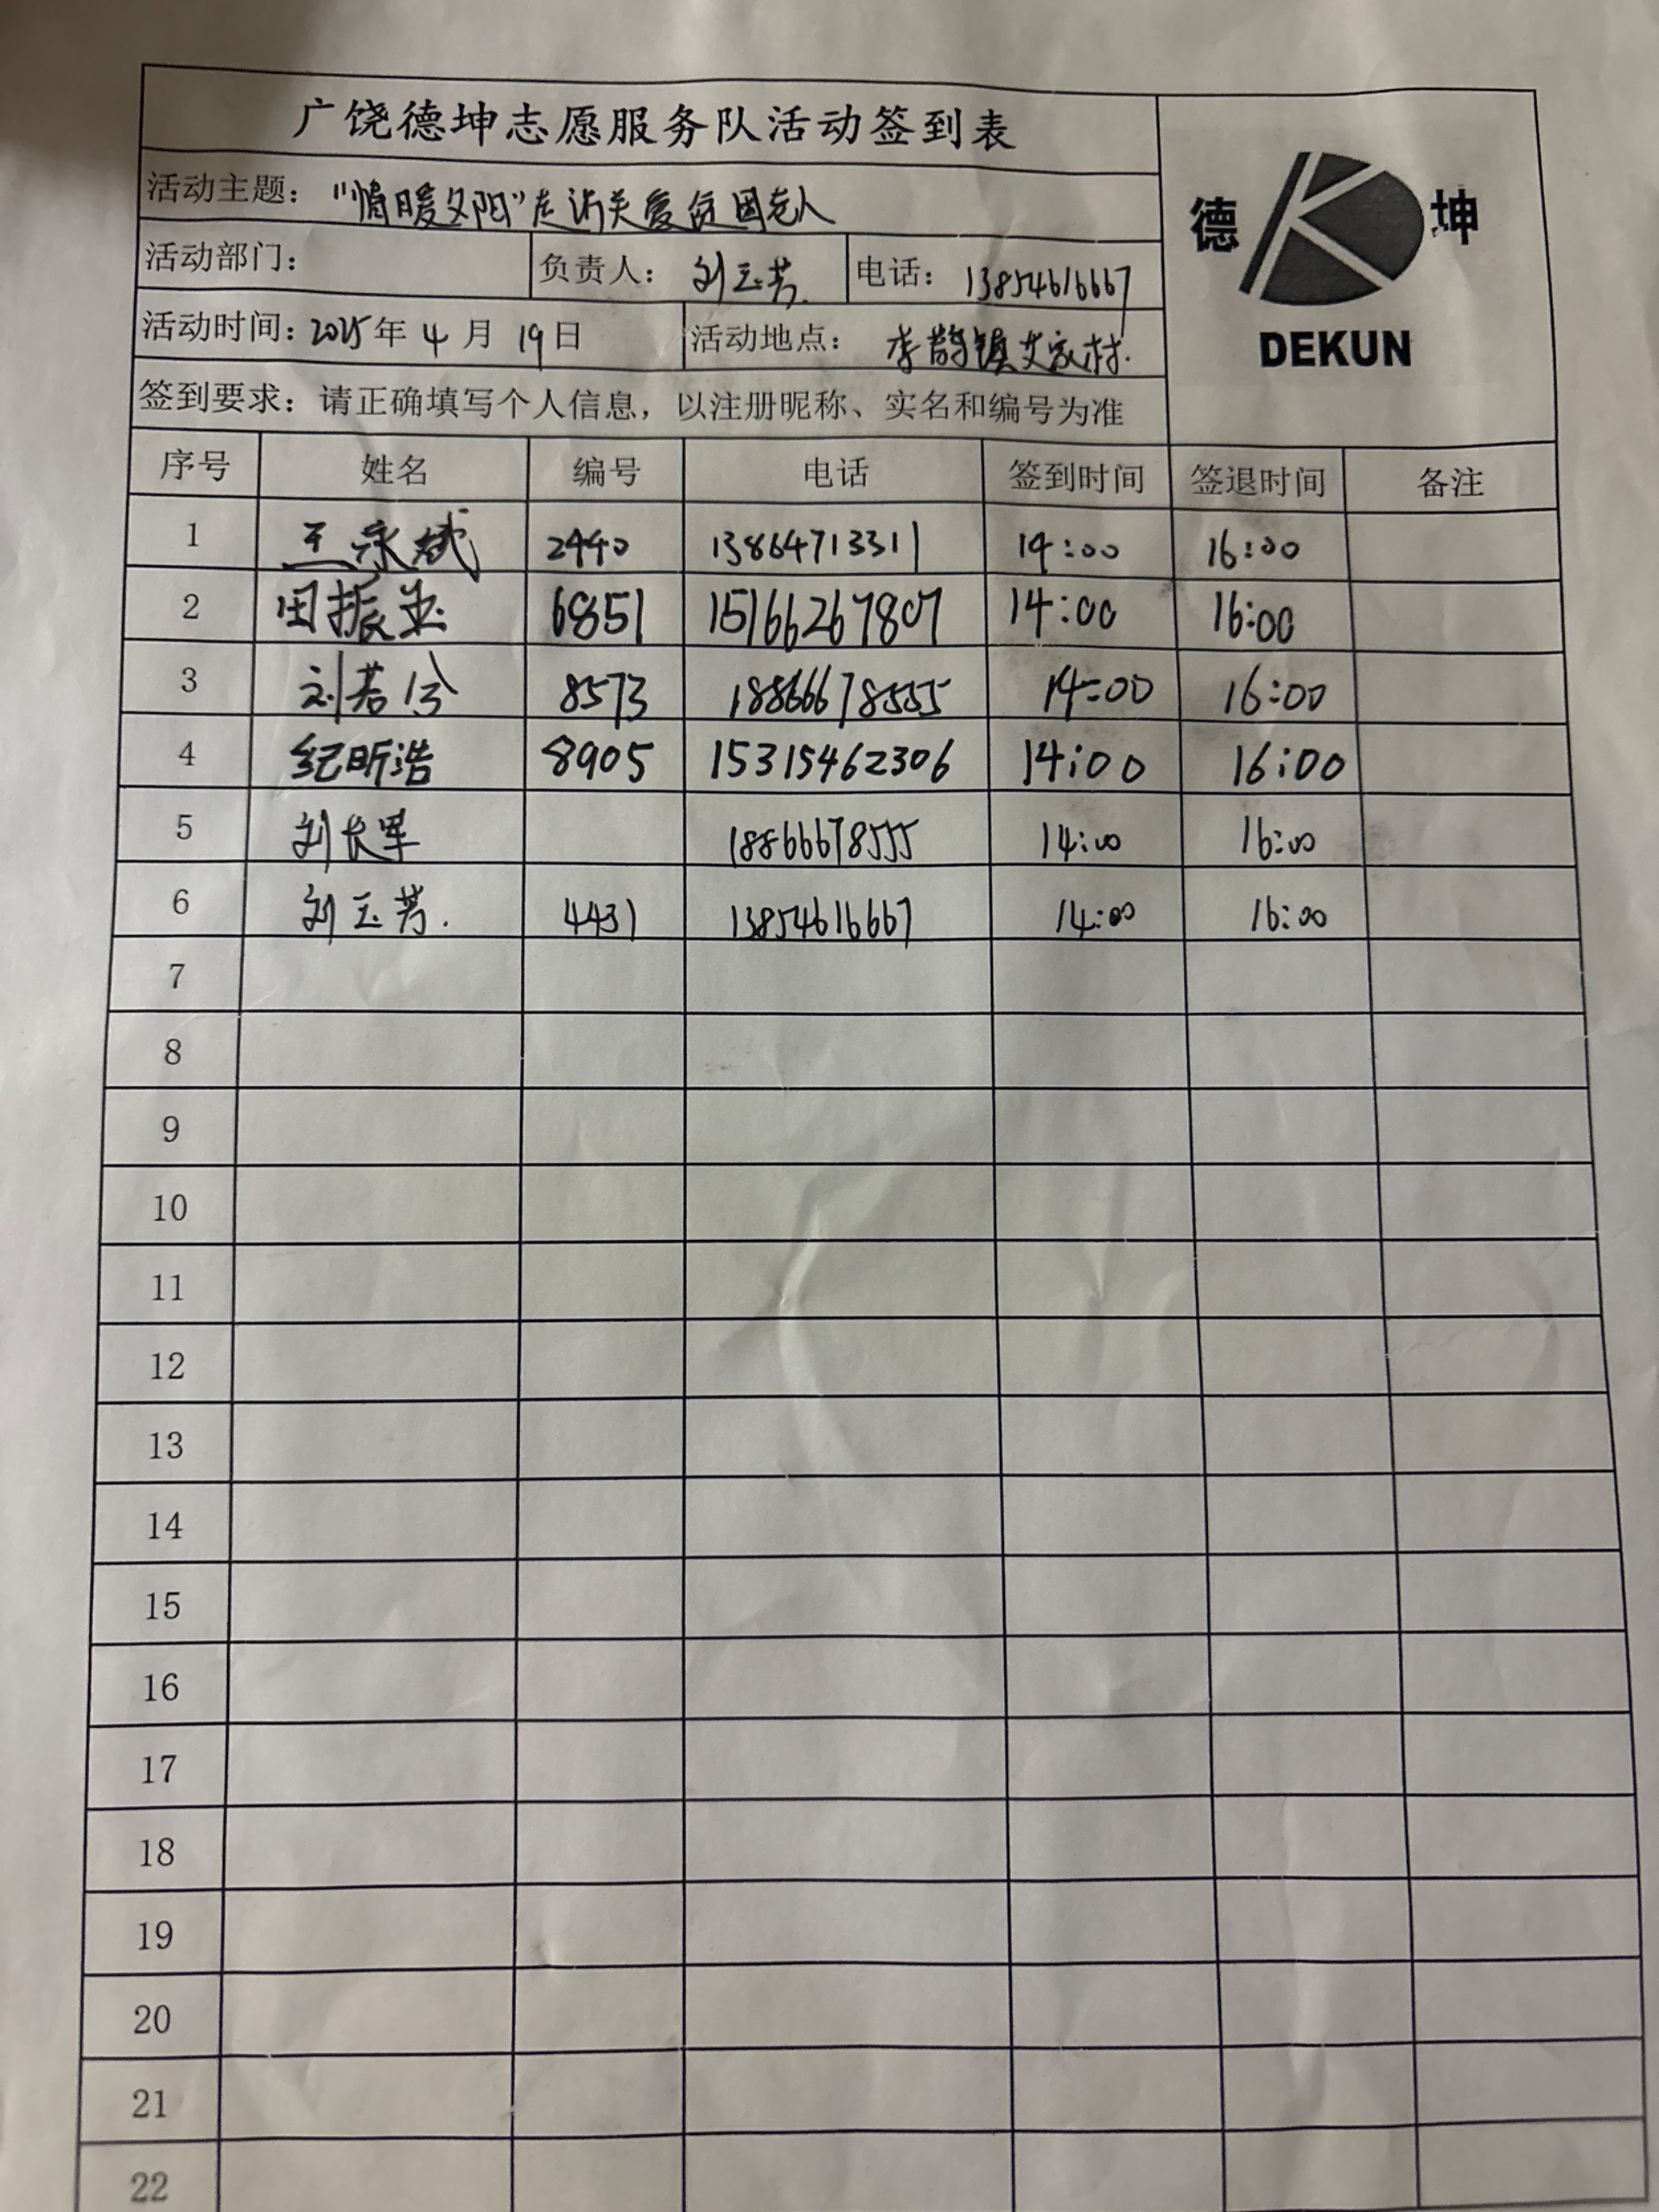 广饶德坤志愿服务队活动签到表
活动主题："情暖夕阳"走访关爱贫困老人
德 坤
DEKUN
活动部门： 负责人：刘玉芳. 电话：13854616667
活动时间：2025年4月19日 活动地点：李鹊镇艾家村.
签到要求：请正确填写个人信息，以注册昵称、实名和编号为准
序号 姓名 编号 电话 签到时间 签退时间 备注
1 王永斌 2440 13864713311 14:00 16:00
2 田振业 6851 15166267807 14:00 16:00
3 刘若兮 8573 18866678555 14:00 16:00
4 纪昕浩 8905 15315462306 14:00 16:00
5 刘长军 18866678555 14:00 16:00
6 刘玉芳. 4431 13854616667 14:00 16:00
7
8
9
10
11
12
13
14
15
16
17
18
19
20
21
22